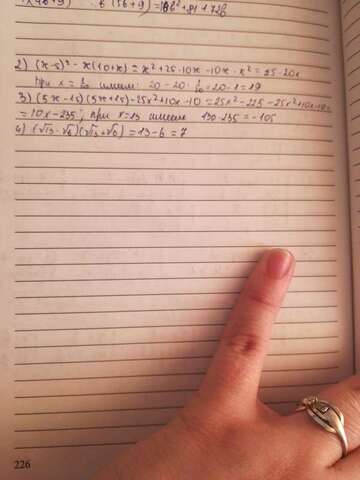 (5b+9) = 
2) (x-5)² - x(10+x) = x²+25-10x-10x-x² = 25-20x
При x = 1/20 имеем: 20-20·1/20 = 20-1 = 19
3) (5x-15)(5x+15)-25x²+10x-10 = 25x²-225-25x²+10x-10=
= 10x-235; при x=13 имеем 130-235=-105
4) (√13-√6)(√13+√6) = 13-6 = 7
226